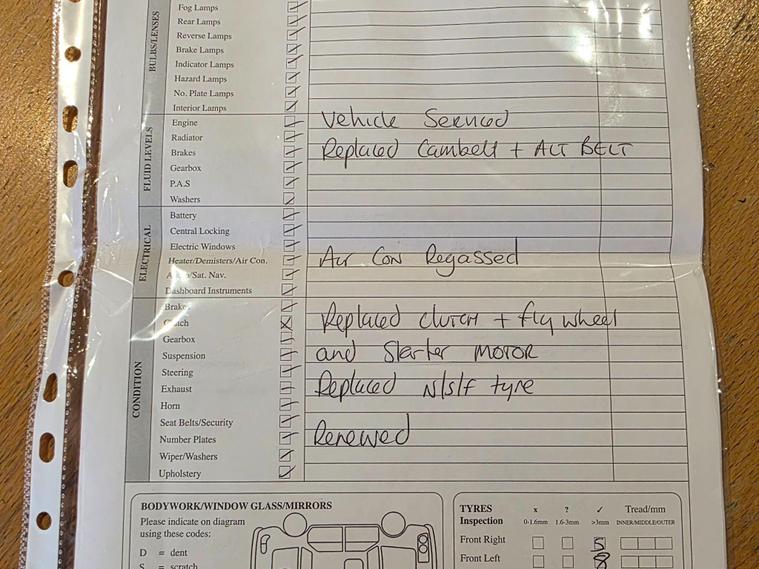 BULBS/LENSES
Fog Lamps
Rear Lamps
Reverse Lamps
Brake Lamps
Indicator Lamps
Hazard Lamps
No. Plate Lamps
Interior Lamps
FLUID LEVELS
Engine Vehicle Serviced
Radiator
Brakes Replaced Cambelt + ALT BELT
Gearbox
P.A.S
Washers
ELECTRICAL
Battery
Central Locking
Electric Windows
Heater/Demisters/Air Con. Air Con Regassed
/Sat. Nav.
Dashboard Instruments
CONDITION
Brakes
Clutch Replaced CLUTCH + fly wheel
Gearbox
Suspension and Starter MOTOR
Steering
Exhaust Replaced N/S/F tyre
Horn
Seat Belts/Security
Number Plates Renewed
Wiper/Washers
Upholstery
BODYWORK/WINDOW GLASS/MIRRORS
Please indicate on diagram
using these codes:
D = dent
S = scratch
TYRES x ? ✓ Tread/mm
Inspection 0-1.6mm 1.6-3mm >3mm INNER/MIDDLE/OUTER
Front Right 5
Front Left 8